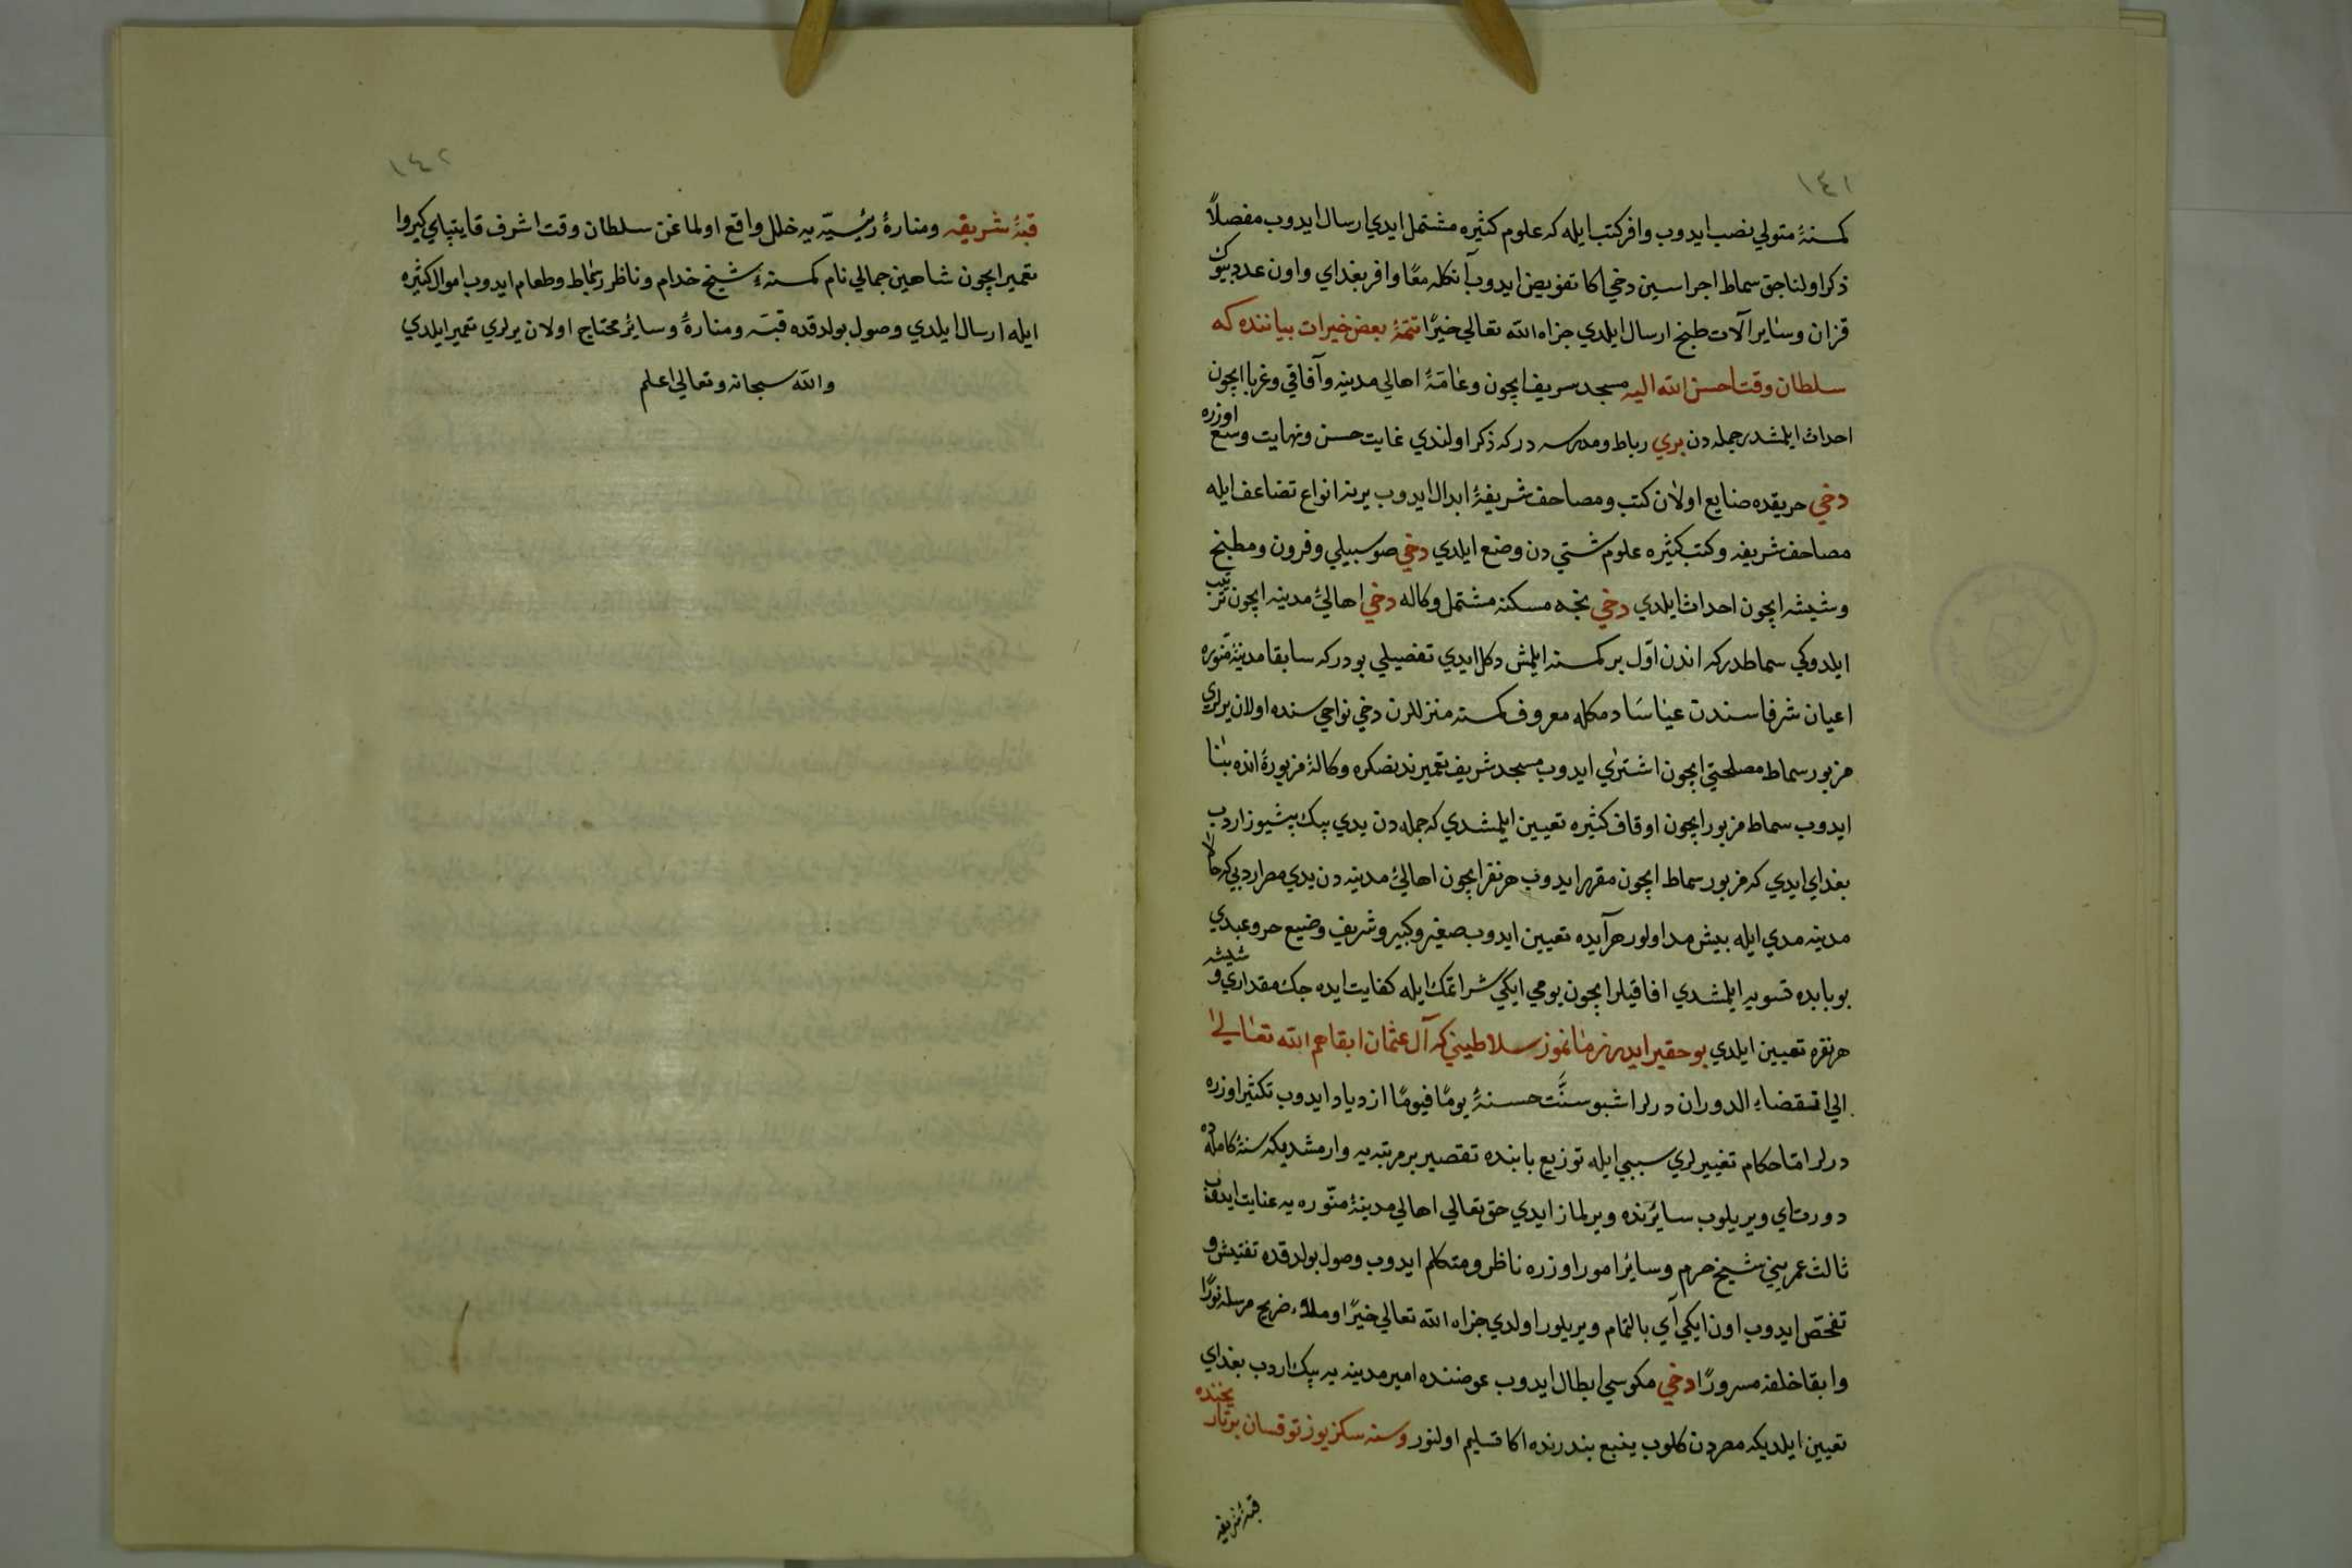 ١٤١
كمسنهٔ متولي نصب ايدوب وافر كتب ايله كه علوم كثيره مشتمل ايدي ارسال ايدوب مفصلاً
ذكر اولناجق سماط اجراسين دخي اكا تفويض ايدوب آنكله معًا وافر بغداي واون عدد بيوك
قزان وساير آلات طبخ ارسال ايلدي جزاه الله تعالي خيرًا تتمّهٔ بعض خيرات بياننده كه
سلطان وقت احسن الله اليه مسجد سريف ايچون وعامّهٔ اهالي مدينه وآفاقي وغربا ايچون
احداث ايلمشدر جمله دن بري رباط ومدرسه در كه ذكر اولندي غايت حسن ونهايت وسع اوزره
دخي حريقده ضايع اولان كتب ومصاحف شريفهٔ ابدال ايدوب يرينه انواع تضاعف ايله
مصاحف شريفه وكتب كثيره علوم شتي دن وضع ايلدي دخي صو سبيلي وفرون ومطبخ
وشيشه ايچون احداث ايلدي دخي نجه مسكنه مشتمل وكاله دخي اهالئ مدينه ايچون ترتيب
ايلدوكي سماطدر كه اندن اوّل بر كمسنه ايلمش دكل ايدي تفصيلي بودر كه سابقا مدينهٔ منوره
اعيان شرفا سندن عيناسا دمكله معروف كمسنه منزللرن دخي نواحي سنده اولان يرلري
مزبور سماط مصلحتي ايچون اشتري ايدوب مسجد شريف تعميرندنصكره وكالهٔ مزبورهٔ انده بنا
ايدوب سماط مزبور ايچون اوقاف كثيره تعيين ايلمشدي كه جمله دن يدي بيك بشيوز اردب
بغداي ايدي كه مزبور سماط ايچون مقرر ايدوب هر نفر ايچون اهالئ مدينه دن يدي مصر اردبي كه حالا
مدينه مدي ايله بيش مد اولور هر آيده تعيين ايدوب صغير وكبير وشريف وضيع حر وعبدي
بو بابده تسويه ايلمشدي افاقيلر ايچون يومي ايكي شر اتمك ايله كفايت ايده جك مقداري و شيشه
هر نفره تعيين ايلدي بو حقير ايدر زمانموز سلاطيني كه آل عثمان ابقاهم الله تعالي
الي انقضاء الدوران درلر اشبو سنّت حسنهٔ يومًا فيومًا ازدياد ايدوب تكثير اوزره
درلر امّا حكام تغييرلري سببي ايله توزيع بابنده تقصير بر مرتبه يه وارمشديكه سنهٔ كامله ده
دورت اي ويريلوب سايرنده ويرلماز ايدي حق تعالي اهالي مدينهٔ منّوره يه عنايت ايدوب
ثالث عمريني شيخ حرم وساير امور اوزره ناظر ومتكلم ايدوب وصول بولدقده تفتيش و
تفحّص ايدوب اون ايكي آي بالتمام ويريلور اولدي جزاه الله تعالي خيرًا وملاء ضريح مرسله نورًا
وابقا خلفه مسرورًا دخي مكوسي ابطال ايدوب عوضنده امير مدينه يه بيك اردب بغداي
تعيين ايلديكه مصردن كلوب ينبع بندرنده اكا تسليم اولنور وسنه سكز يوز توقسان بر تاريخنده
قبهٔ شريفه
١٤٢
قبهٔ شريفه ومنارهٔ رئيسيّه يه خلل واقع اولماغن سلطان وقت اشرف قايتباي كيروا
تعمير ايچون شاهين جمالي نام كمسنهٔ شيخ خدام وناظر رباط وطعام ايدوب اموال كثيره
ايله ارسال ايلدي وصول بولدقده قبّه ومنارهٔ وساير محتاج اولان يرلري تعمير ايلدي
والله سبحانه وتعالي اعلم